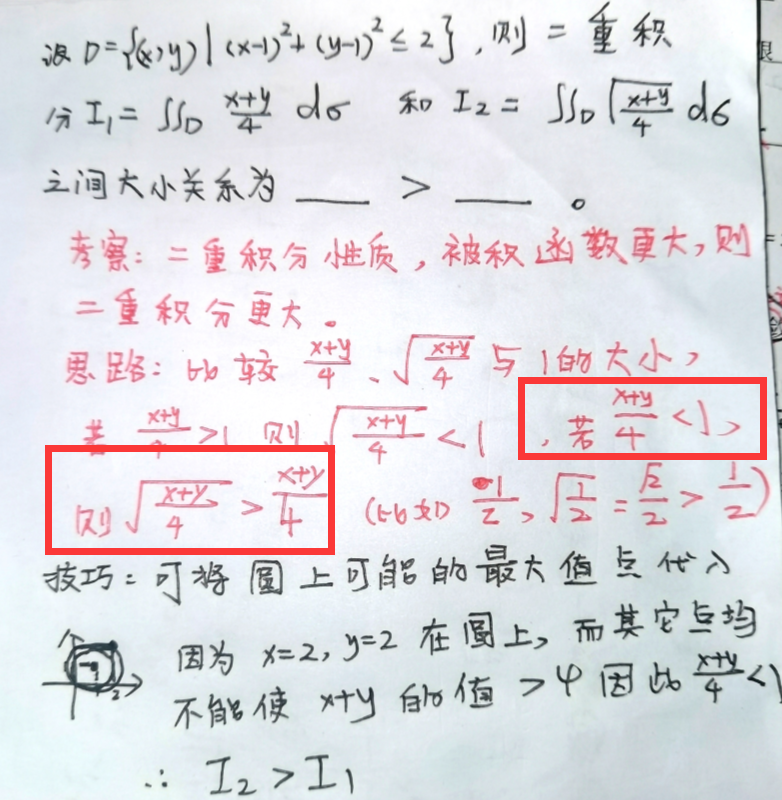 设D={(x,y)|(x-1)²+(y-1)²≤2},则二重积
分I₁=∬D (x+y)/4 dσ 和 I₂=∬D √((x+y)/4) dσ
之间大小关系为____>____。
考察:二重积分性质,被积函数更大,则
二重积分更大。
思路:比较 (x+y)/4、√((x+y)/4) 与1的大小,
若 (x+y)/4 >1 则 √((x+y)/4) <1 ,若 (x+y)/4 <1,
则 √((x+y)/4) > (x+y)/4 (比如 1/2,√(1/2)=√2/2 > 1/2)
技巧:可将圆上可能的最大值点代入
因为x=2,y=2在圆上,而其它点均
不能使x+y的值>4因此 (x+y)/4 <1
∴ I₂>I₁